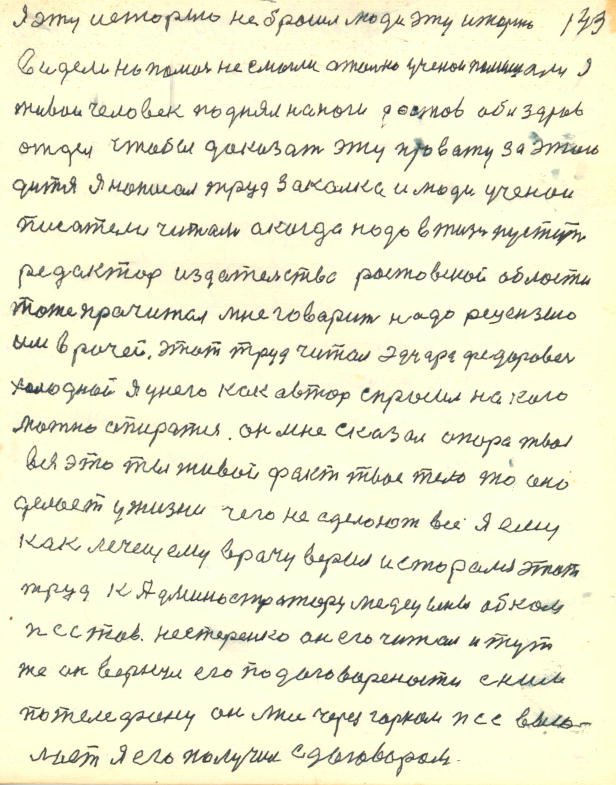 Я эту историю не бросил люди эту историю 133
видели но помоч не смогли а только ученои помешали я
живои человек поднял на ноги востов оби здров
отдел чтобы доказат эту провату за этого
дитя Я написал труд закалка и люди ученои
писатели читали а когда надо в жизн пустит
редактор издателства ростовской области
тоже прачитал мне говарит надо рецензию
им врочей. этот труд читал Эдуард федоровеч
холодной я унего как автор спросил на кого
можно опиратся. он мне сказал опора твоя
вся это ты живой факт твое тело то оно
делает у жизни чего не сделоют все я ему
как лечещему врачу верил и старался этот
труд к Администратору медецины обком
псс тов. нестеренко он его читал и тут
же он вернул его подоговарености с ним
потелефону он мне через горком псс высы-
лает я его получил с договором.